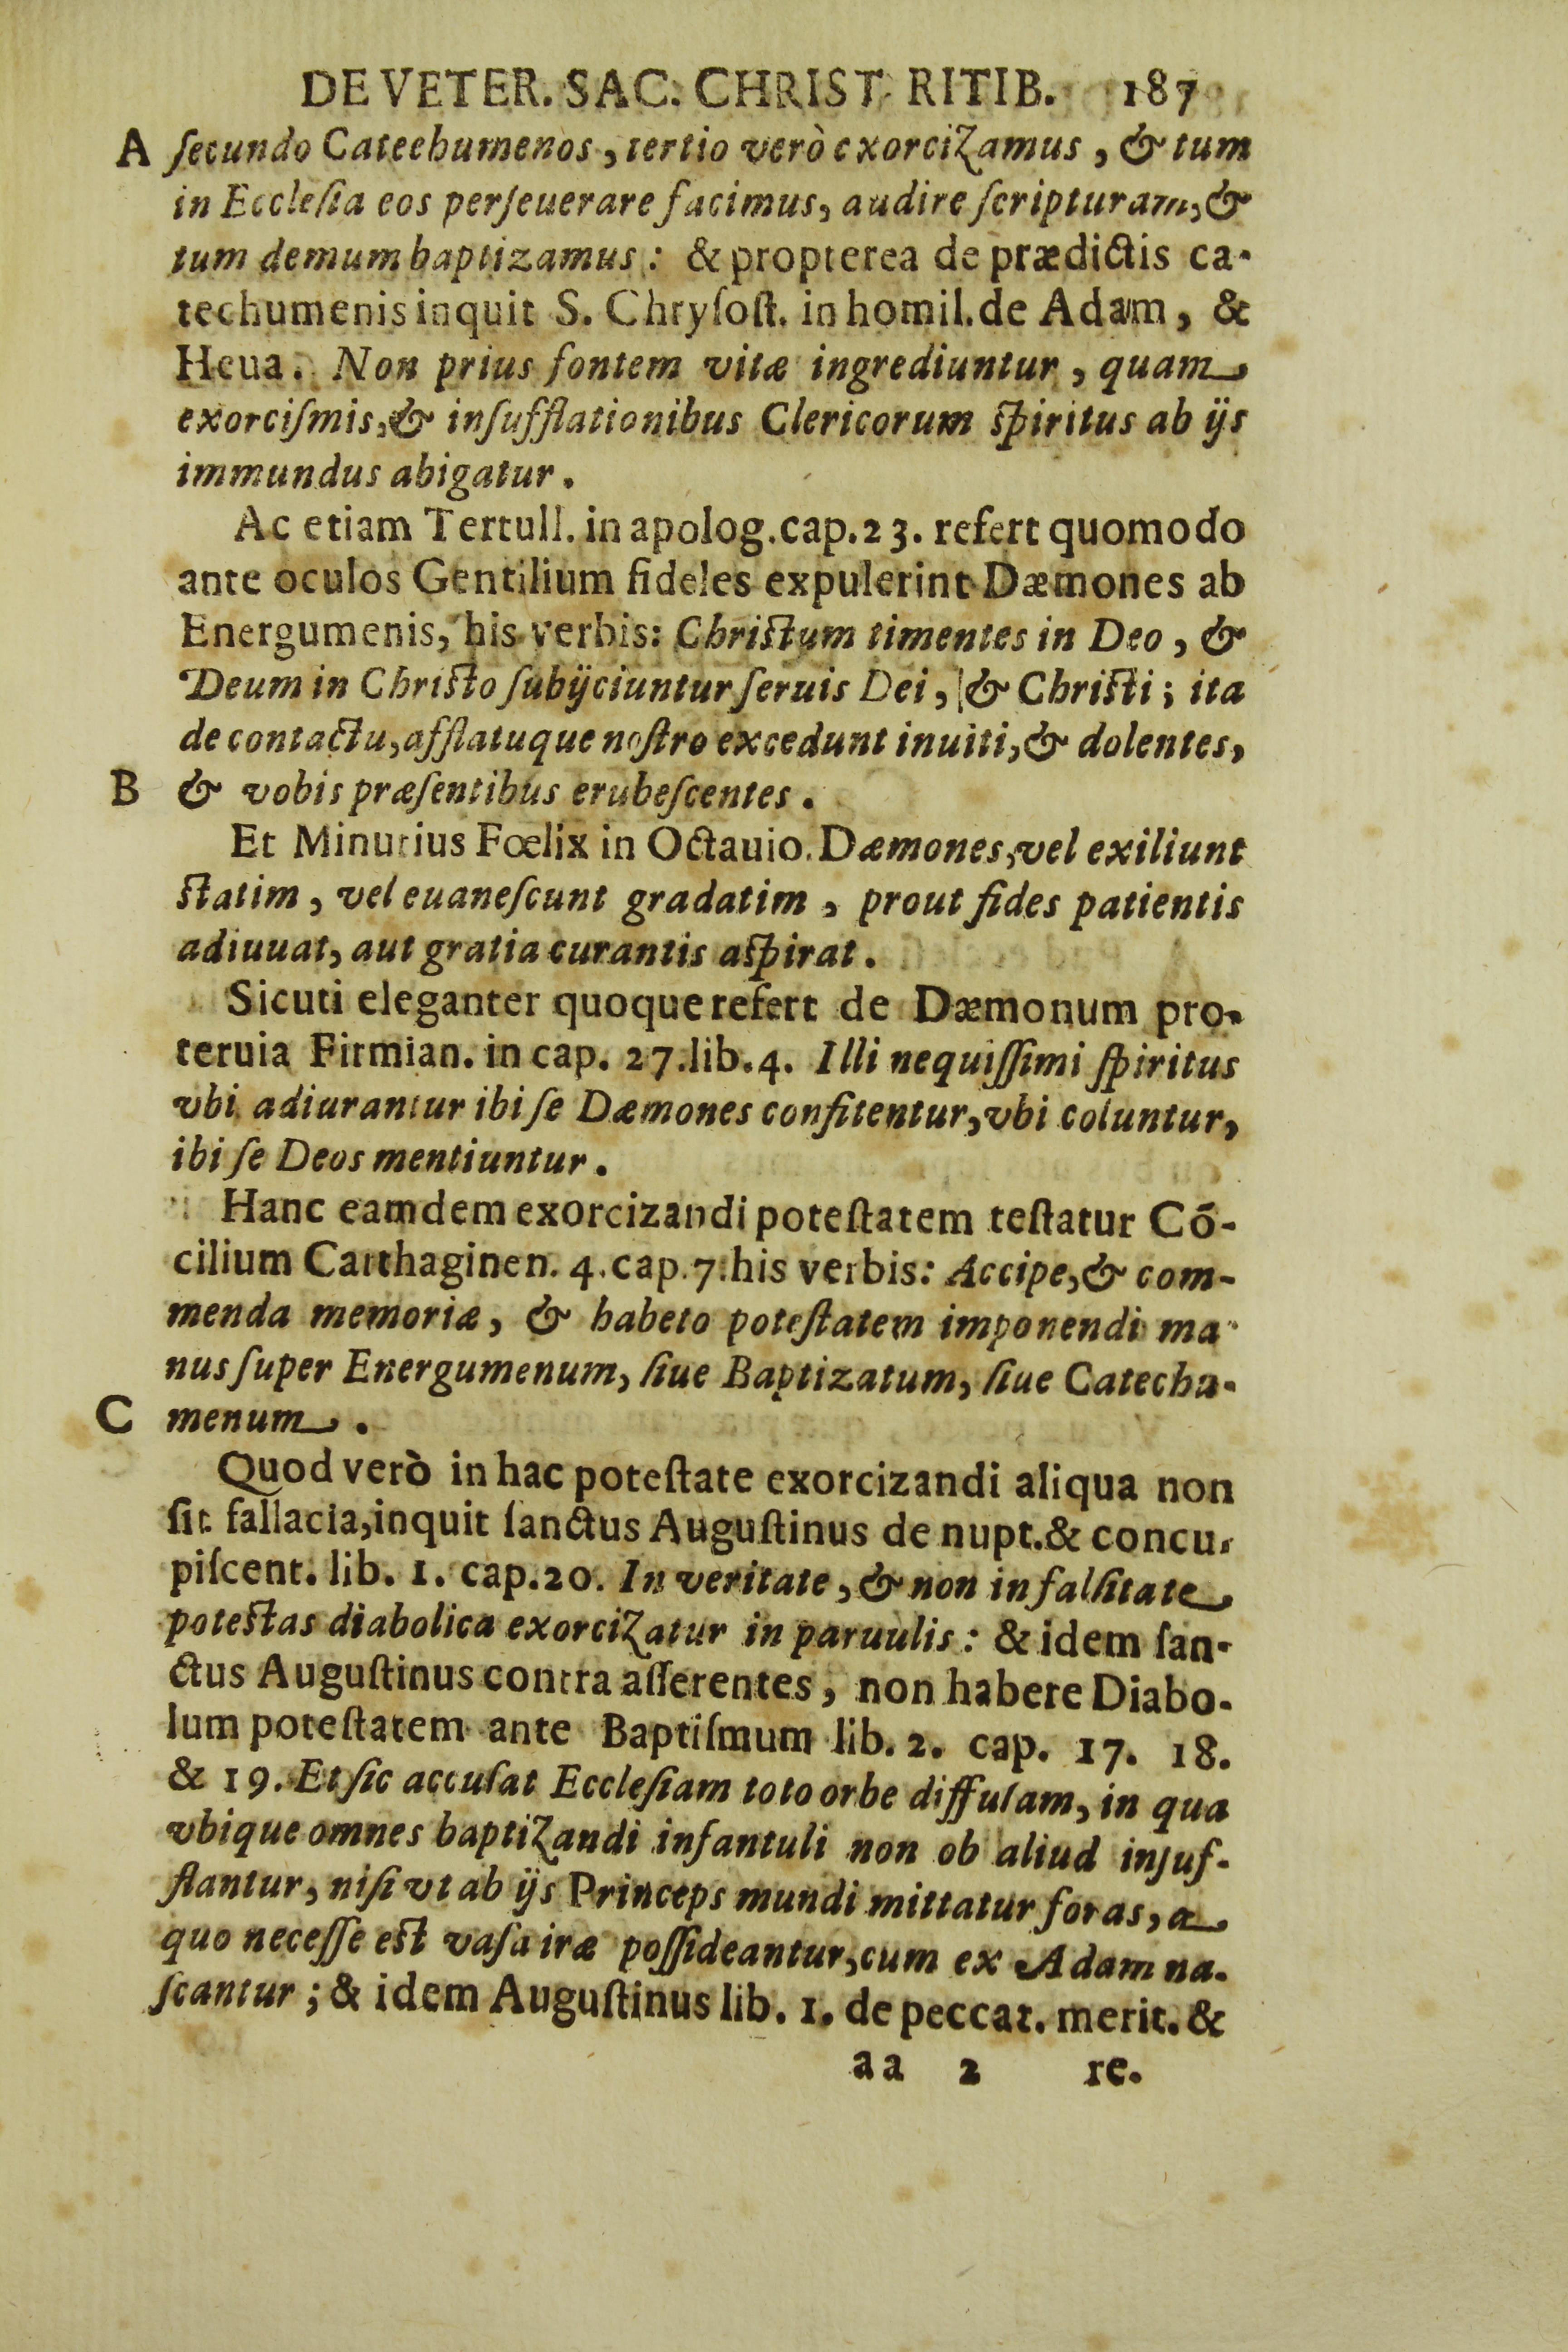 DE VETER. SAC. CHRIST. RITIB. 187
A ſecundo Catechumenos, tertio verò exorcizamus, & tum
in Eccleſia eos perſeuerare facimus, audire ſcripturam, &
tum demum baptizamus: & propterea de prædictis ca-
techumenis inquit S. Chryſoſt. in homil. de Adam, &
Heua. Non prius fontem vitæ ingrediuntur, quam
exorciſmis, & inſufflationibus Clericorum ſpiritus ab ijs
immundus abigatur.
Ac etiam Tertull. in apolog. cap. 23. refert quomodo
ante oculos Gentilium fideles expulerint Dæmones ab
Energumenis, his verbis: Chriſtum timentes in Deo, &
Deum in Chriſto ſubijciuntur ſeruis Dei, & Chriſti; ita
de contactu, afflatuque noſtro excedunt inuiti, & dolentes,
B & vobis præſentibus erubeſcentes.
Et Minutius Fœlix in Octauio. Dæmones, vel exiliunt
ſtatim, vel euaneſcunt gradatim, prout fides patientis
adiuuat, aut gratia curantis aſpirat.
Sicuti eleganter quoque refert de Dæmonum pro-
teruia Firmian. in cap. 27. lib. 4. Illi nequiſſimi ſpiritus
vbi adiurantur ibi ſe Dæmones confitentur, vbi coluntur,
ibi ſe Deos mentiuntur.
Hanc eamdem exorcizandi poteſtatem teſtatur Cõ-
cilium Carthaginen. 4. cap. 7. his verbis: Accipe, & com-
menda memoriæ, & habeto poteſtatem imponendi ma-
nus ſuper Energumenum, ſiue Baptizatum, ſiue Catechu-
C menum.
Quod verò in hac poteſtate exorcizandi aliqua non
ſit fallacia, inquit ſanctus Auguſtinus de nupt. & concu-
piſcent. lib. 1. cap. 20. In veritate, & non in falſitate
poteſtas diabolica exorcizatur in paruulis: & idem ſan-
ctus Auguſtinus contra aſſerentes, non habere Diabo-
lum poteſtatem ante Baptiſmum lib. 2. cap. 17. 18.
& 19. Et ſic accuſat Eccleſiam toto orbe diffuſam, in qua
vbique omnes baptizandi infantuli non ob aliud inſuf-
flantur, niſi vt ab ijs Princeps mundi mittatur foras, a
quo neceſſe eſt vaſa iræ poſſideantur, cum ex Adam na-
ſcantur; & idem Auguſtinus lib. 1. de peccat. merit. &
aa 2 re.